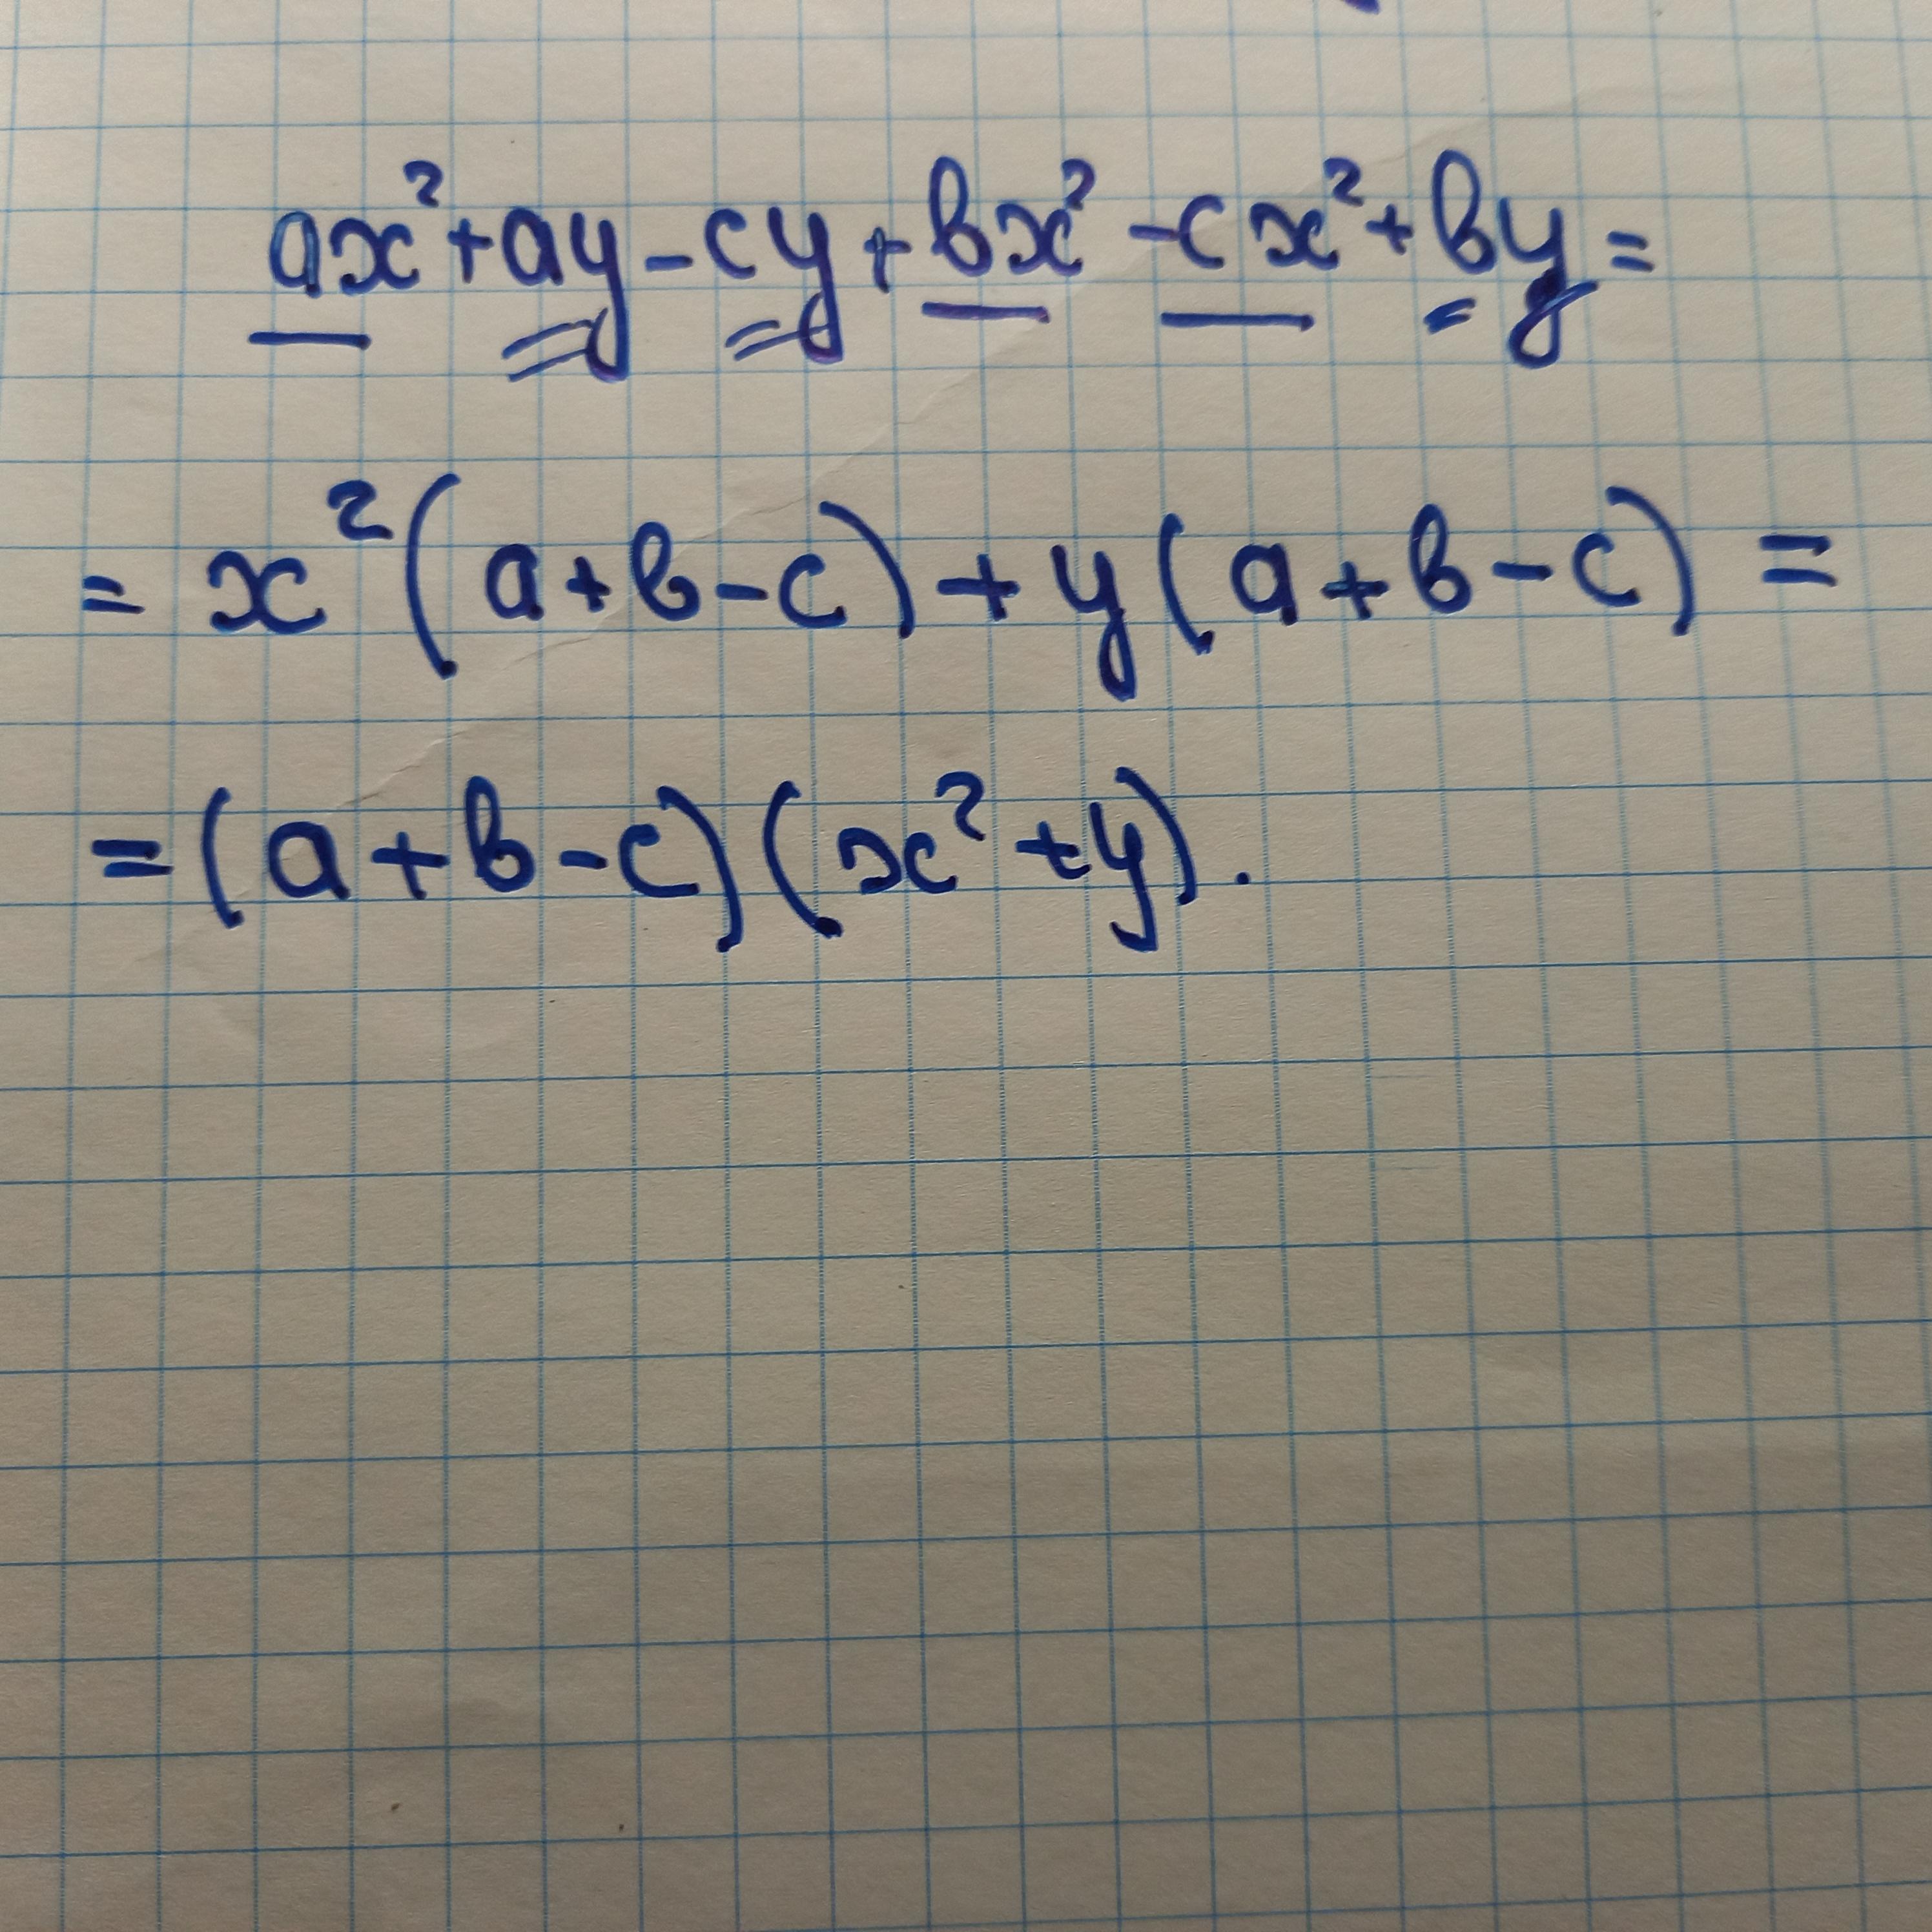 ax²+ay-cy+bx²-cx²+by=
=x²(a+b-c)+y(a+b-c)=
=(a+b-c)(x²+y).